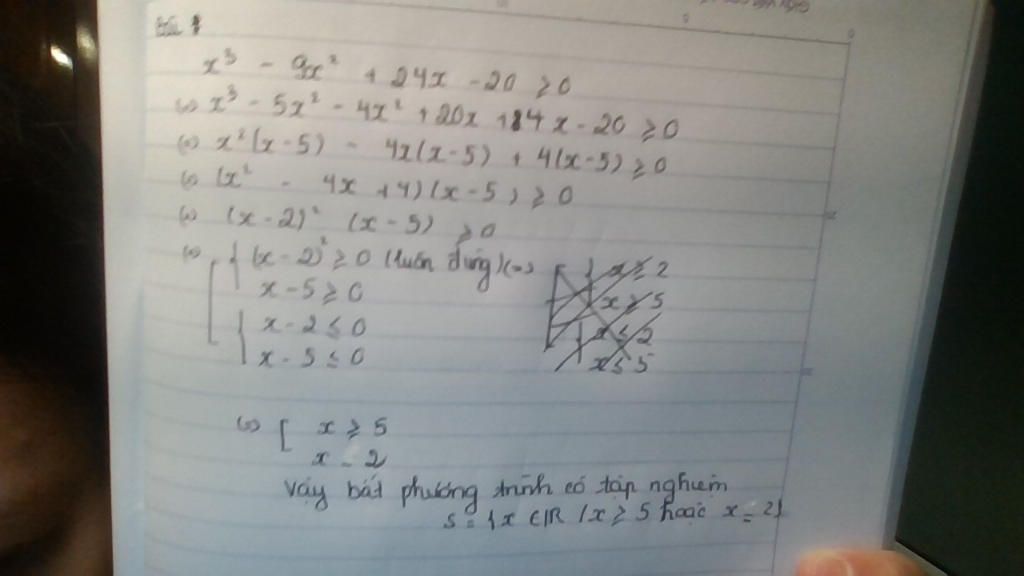 Bài 1
x³ - 9x² + 24x - 20 ≥ 0
(=) x³ - 5x² - 4x² + 20x + 4x - 20 ≥ 0
(=) x²(x - 5) - 4x(x - 5) + 4(x - 5) ≥ 0
(=) (x² - 4x + 4)(x - 5) ≥ 0
(=) (x - 2)² (x - 5) ≥ 0
(=) [ { (x - 2)² ≥ 0 (luôn đúng) (=) [ { x ≥ 2
x - 5 ≥ 0 x ≥ 5
{ x - 2 ≤ 0 { x ≤ 2
x - 5 ≤ 0 x ≤ 5
(=) [ x ≥ 5
x = 2
Vậy bất phương trình có tập nghiệm
S = {x ∈ R / x ≥ 5 hoặc x = 2}